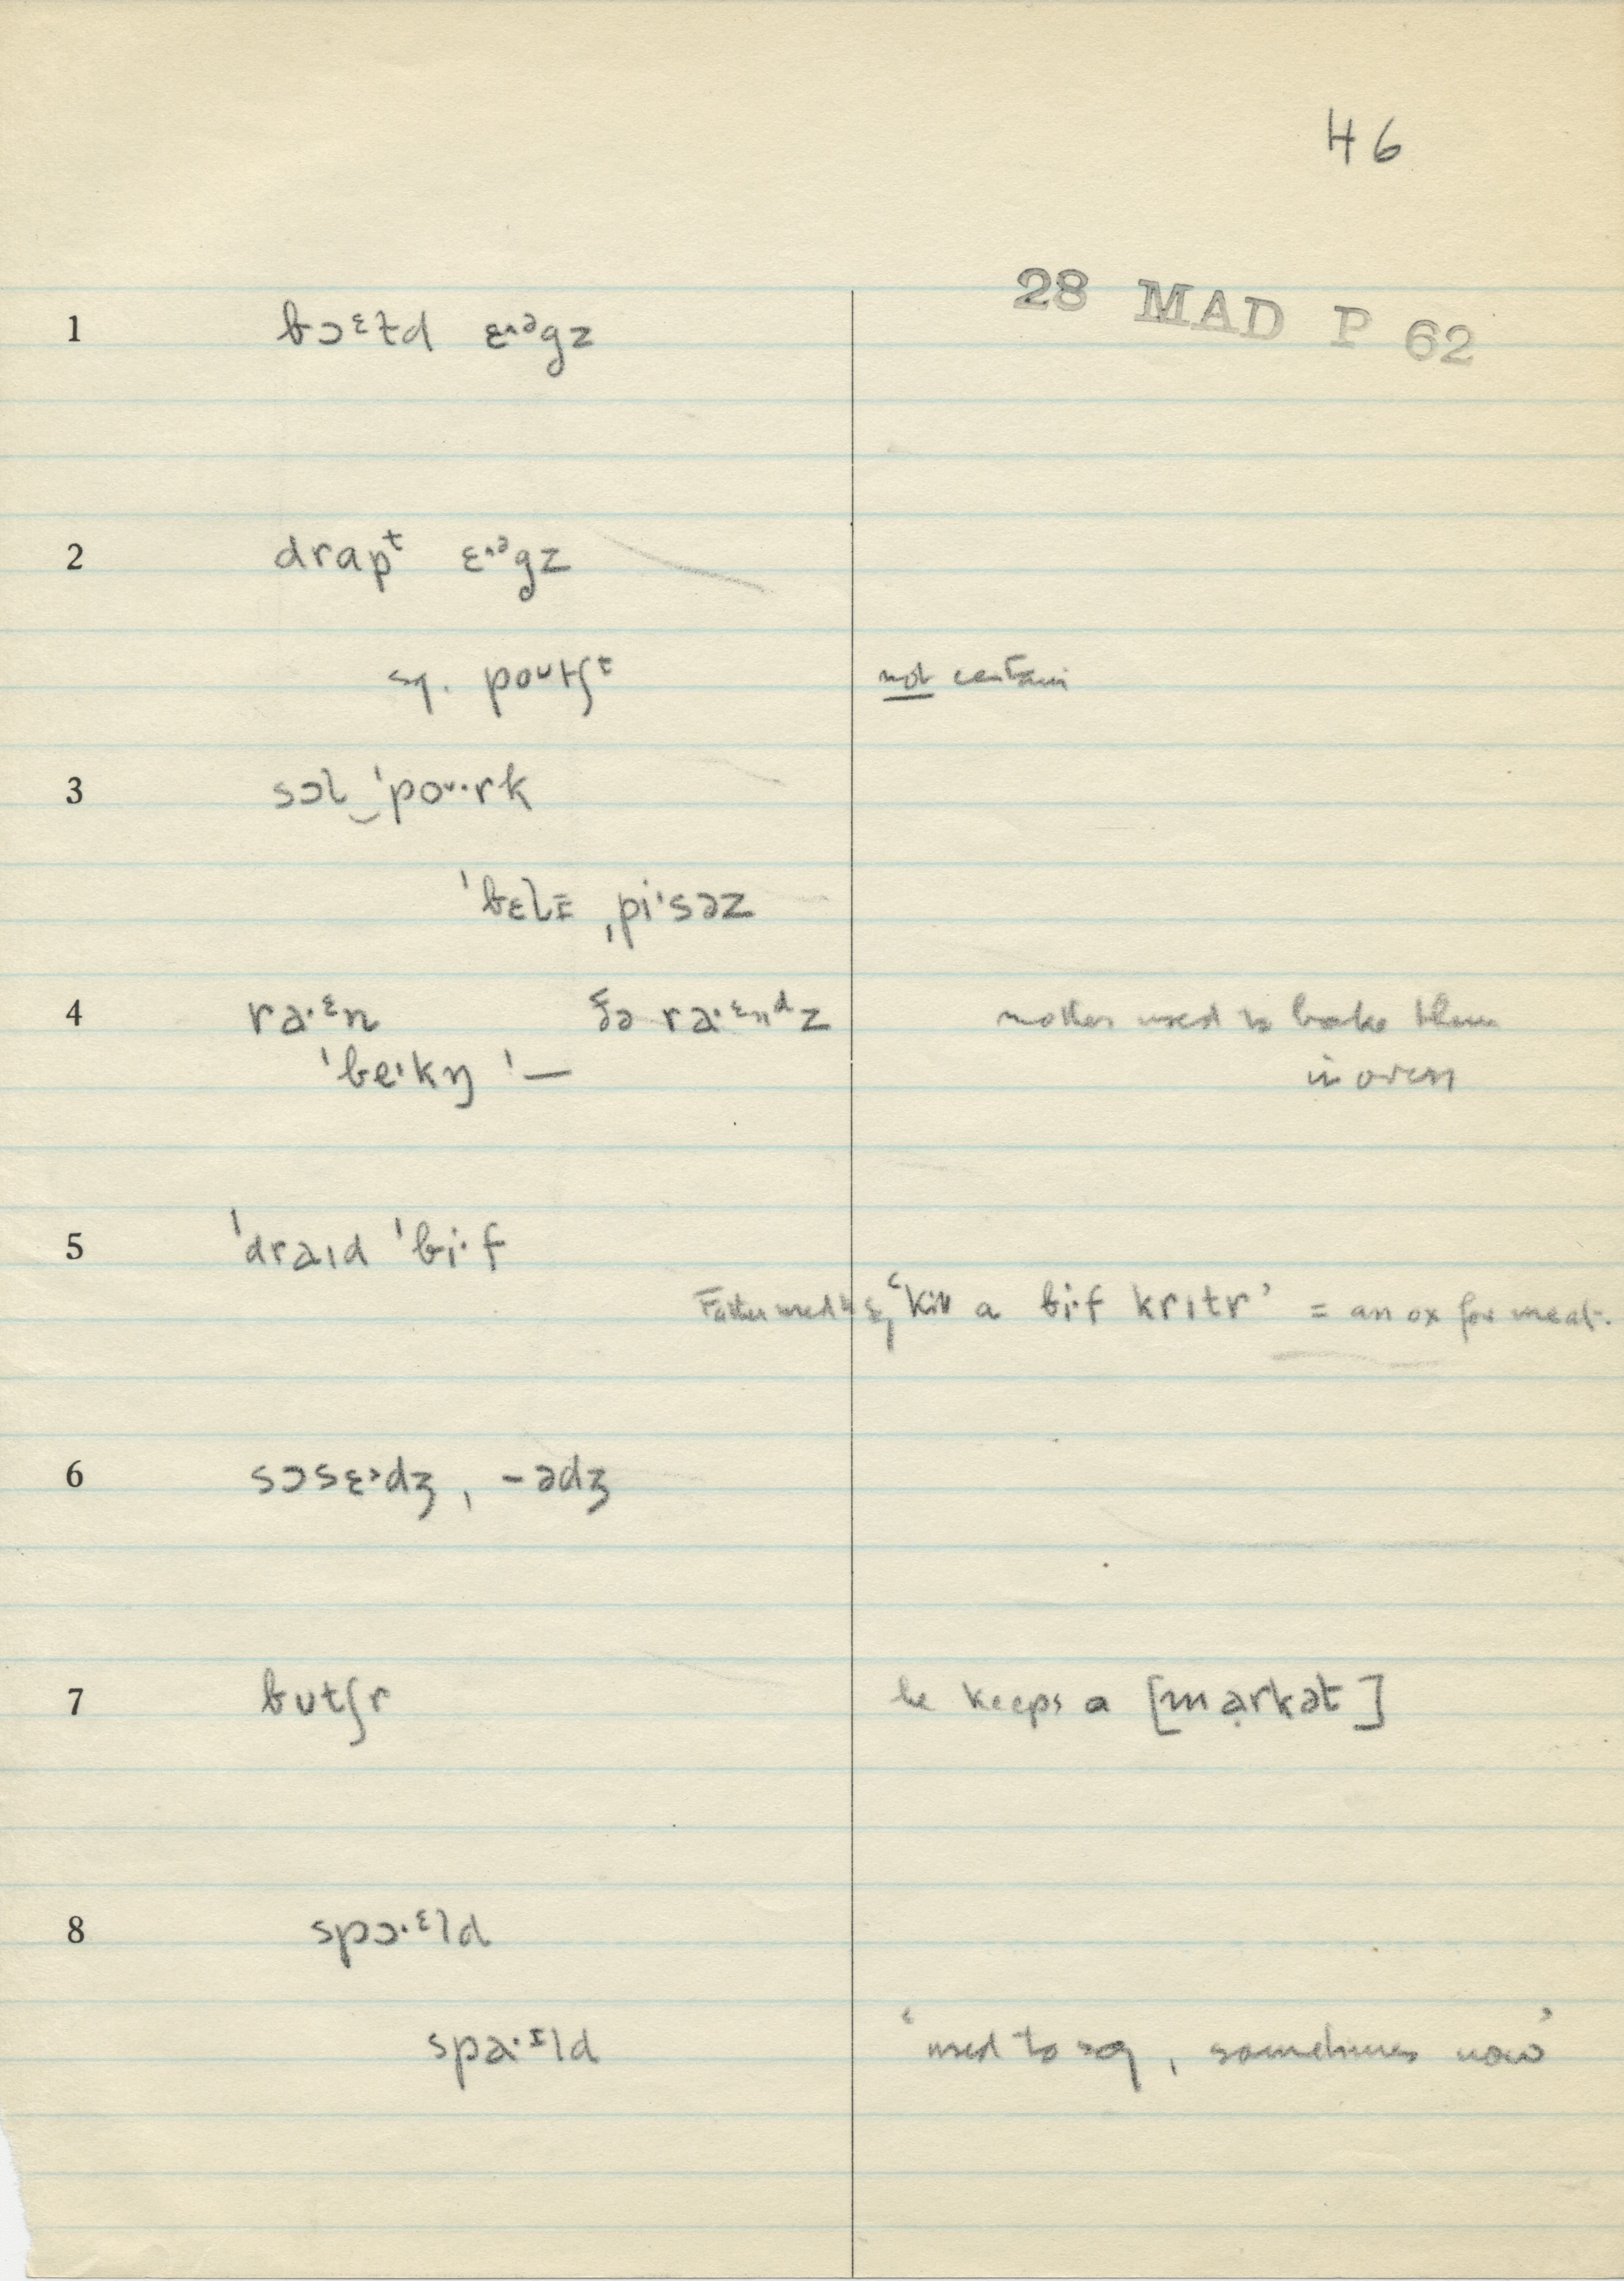 46
28 MAD P 62
1 bɔᵋɫd ɛ˄ᵊgz
2 drapᵗ ɛ˄ᵊgz
sq. poᶷtʃᵗ not certain
3 sɔl‿ˈpoᶷ·rk
ˈbɛlɪ ˌpiˑsəz
4 ra·ᵋn ðə ra·ᵋnᵈz mother used to bake them
ˈbeˑkŋ ˈ— in oven
5 ˈdraɪd ˈbi·f
Father used to sq ‘kill a bi·f krɪtr’ = an ox for meat.
6 sɔsɛ˃dʒ, -ədʒ
7 butʃr he keeps a [mạrkət]
8 spɔ·ᵋld
spa·ᶦld ‘used to sq, sometimes now’